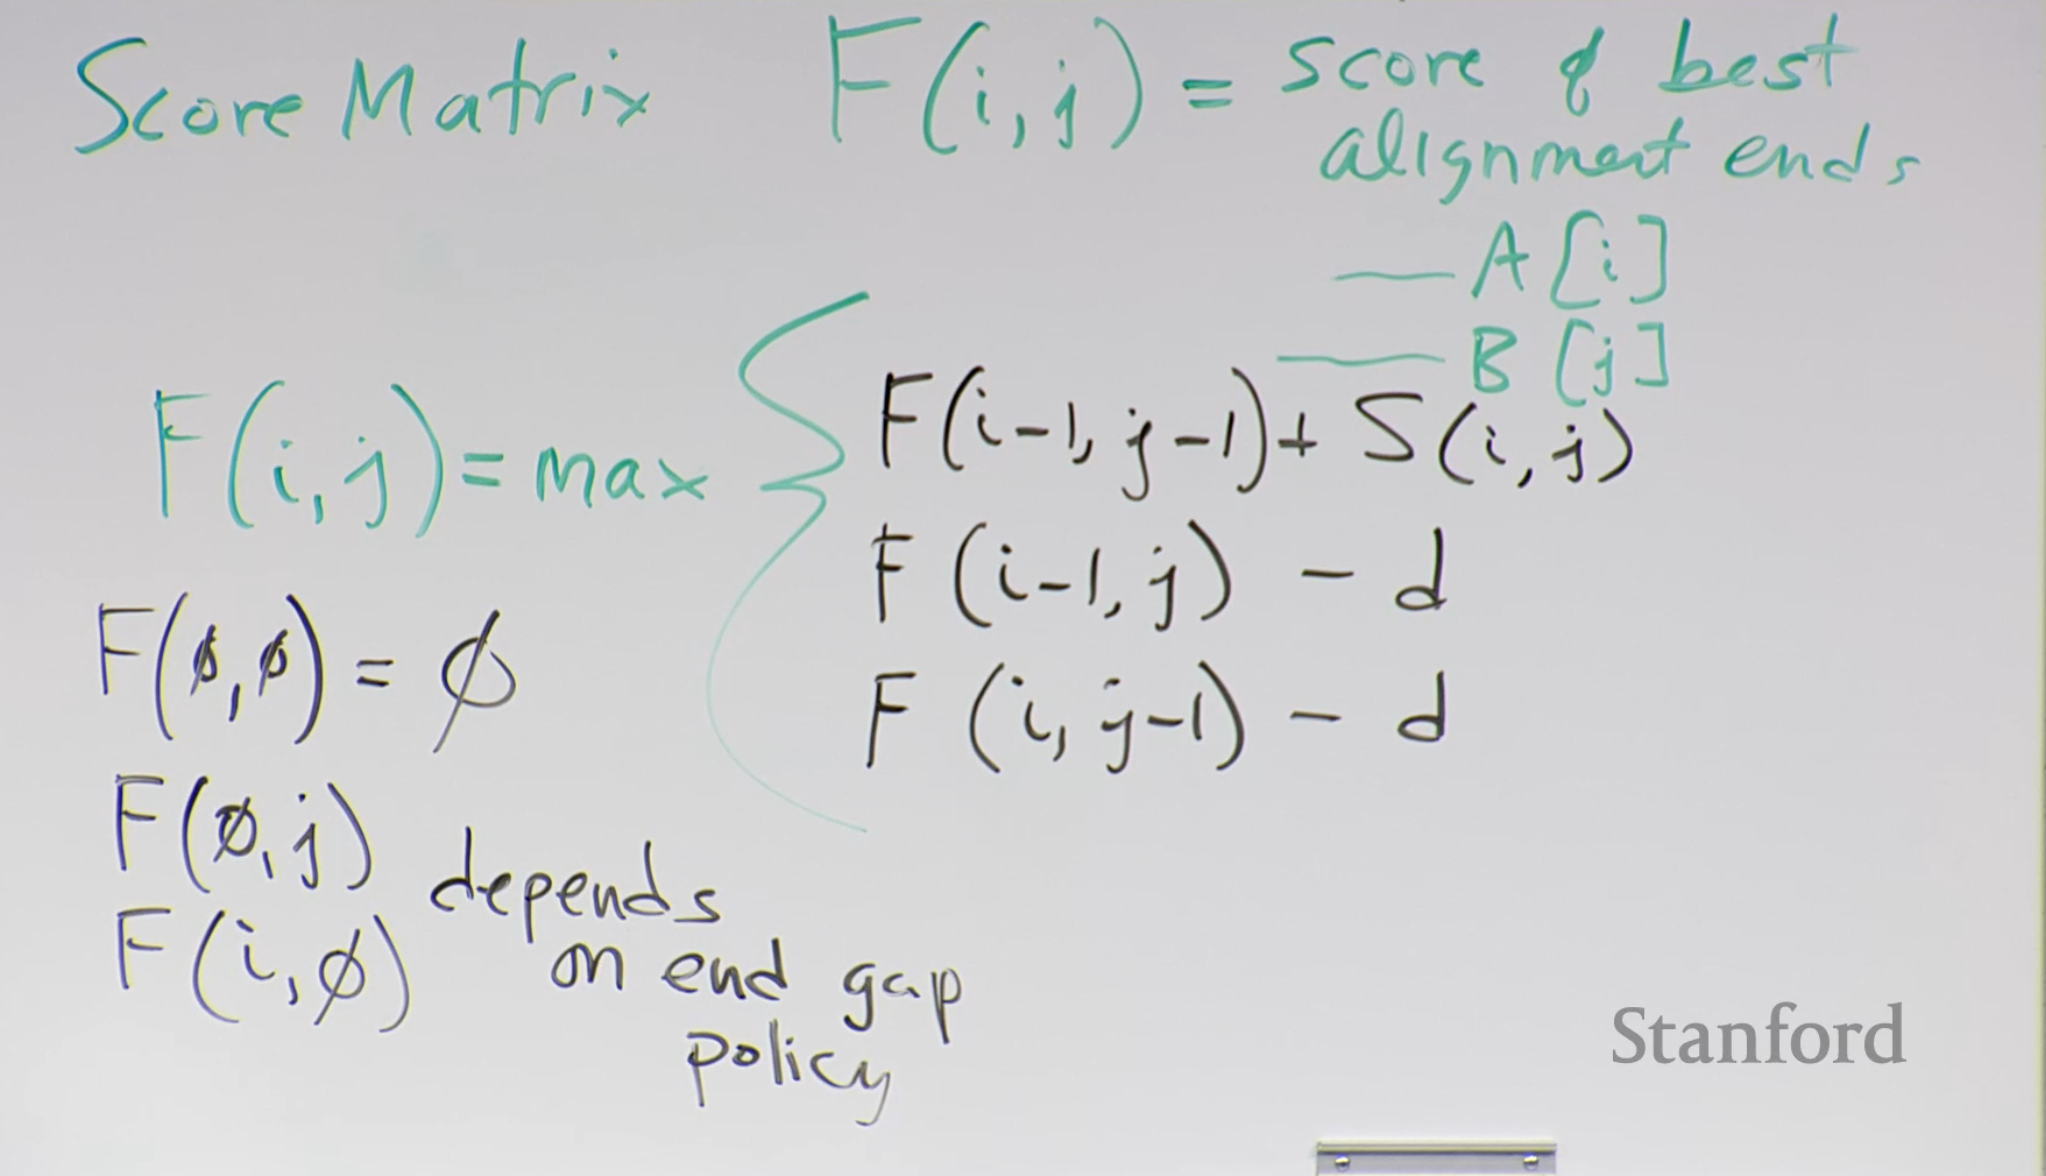 Score Matrix F(i,j) = score of best
alignment ends
— A[i]
— B[j]
F(i,j) = max { F(i-1, j-1) + S(i,j)
F(i-1, j) - d
F(i, j-1) - d
F(ϕ,ϕ) = ϕ
F(ϕ,j)
F(i,ϕ) depends
on end gap
policy
Stanford